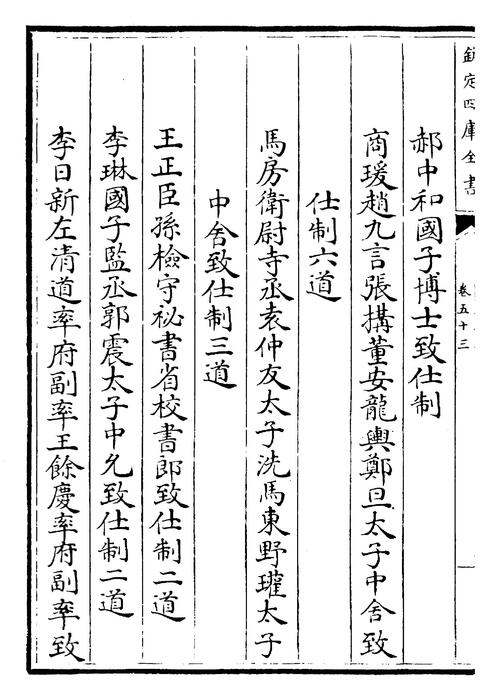 欽定四庫全書
卷五十三
郝中和國子博士致仕制
商瑗趙九言張搆董安龍輿鄭旦太子中舍致
仕制六道
馬房衛尉寺丞袁仲友太子洗馬東野瓘太子
中舍致仕制三道
王正臣孫檢守祕書省校書郎致仕制二道
李琳國子監丞郭震太子中允致仕制二道
李日新左清道率府副率王餘慶率府副率致